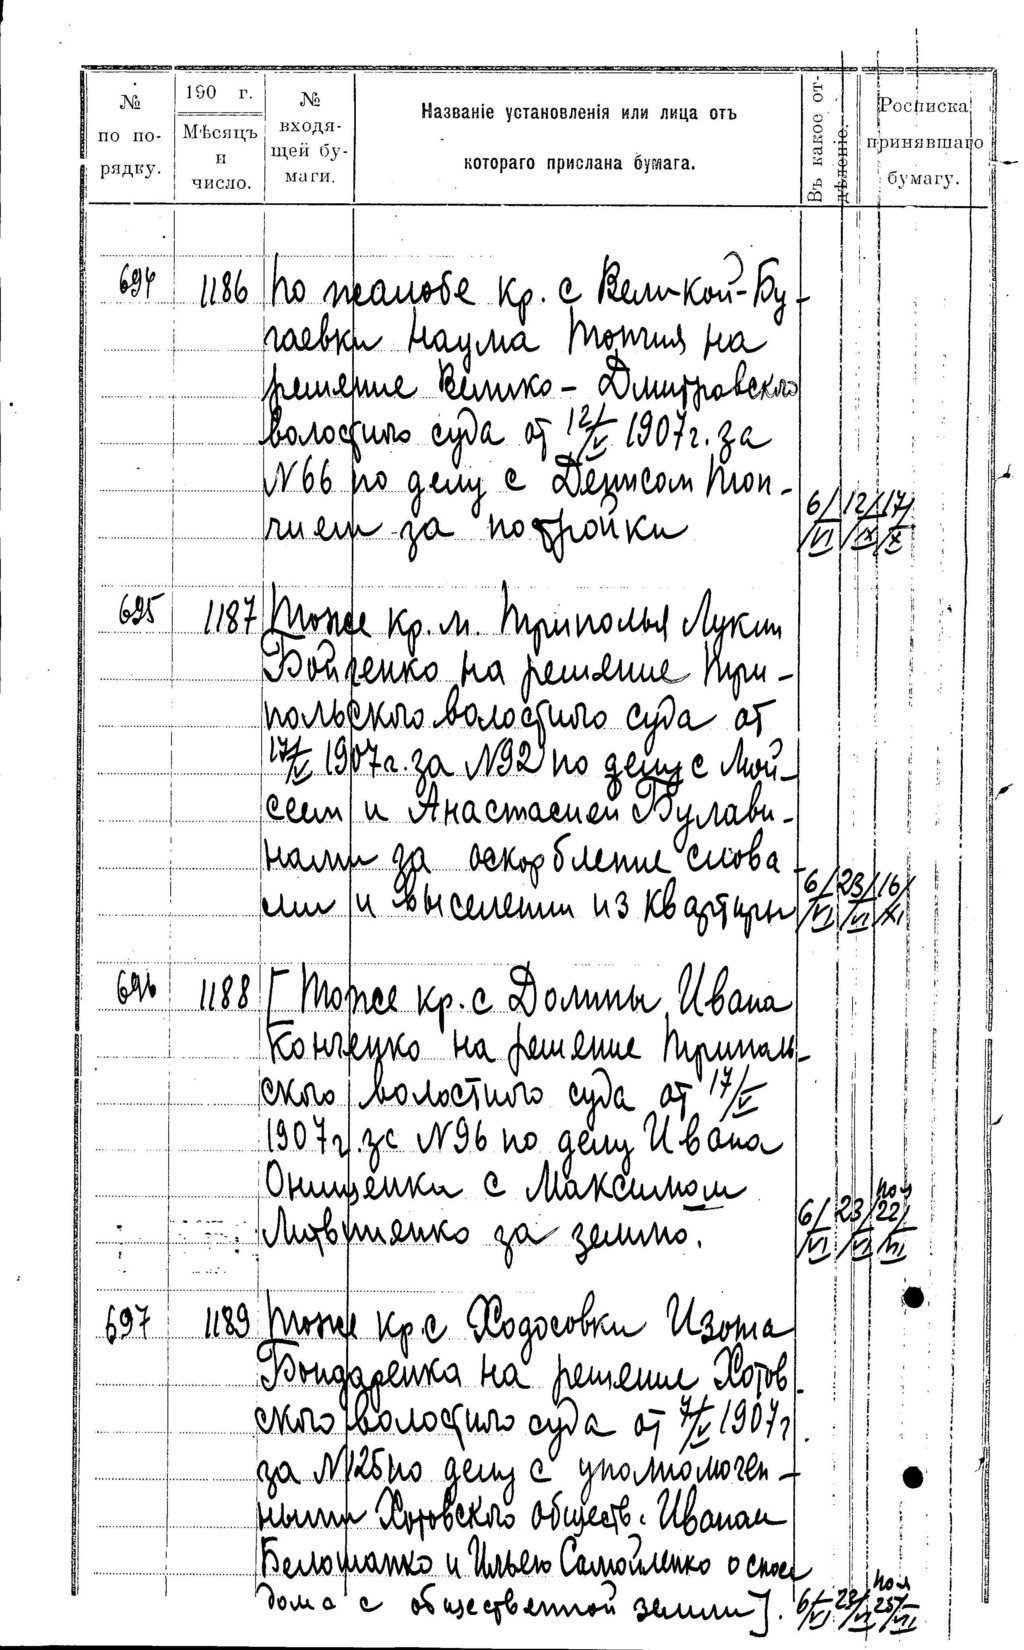 № по по-рядку.
190 г.
Мѣсяцъ и число.
№ входя-щей бу-маги.
Названіе установленія или лица отъ
котораго прислана бумага.
Въ какое от-дѣленіе.
Росписка принявшаго бумагу.
694 1186 По жалобе кр. с Великой-Бу-
гаевки Наума Топчия на
решение Велико-Дмитровского
волостного суда от 12/V 1907 г. за
N 66 по делу с Денисом Топ-
чием за постройки 6/VI 12/IX 17/X
695 1187 Тоже кр. м. Триполья Лукии
Бойченко на решение Три-
польского волостного суда от
17/V 1907 г. за N92 по делу с Мой-
сеем и Анастасией Булави-
нами за оскорбление слова-
ми и выселении из квартиры 6/VI 23/VI 16/XI
696 1188 [Тоже кр. с Долины Ивана
Конченко на решение Триполь-
ского волостного суда от 17/V
1907 г. за N96 по делу Ивана
Онищенки с Максимом
Литвиненко за землю. 6/VI 23/VI пол 22/VII
697 1189 Тоже кр. с Ходосовки Изота
Бондаренка на решение Хотов-
ского волостного суда от 7/V 1907 г.
за N125 по делу с уполномочен-
ными Хотовского обществ. Иваном
Белошапко и Ильею Самойленко о сносе
дома с общественной земли]. 6/VI 23/VI пол 25/VII